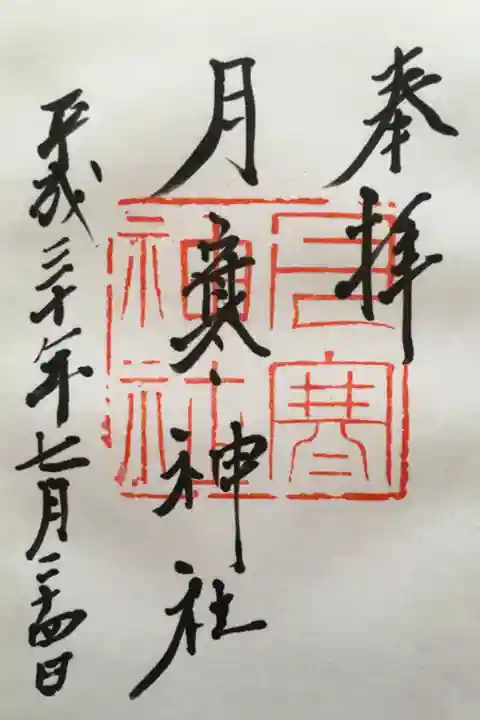 奉拝
月寒神社
月寒神社
平成三十年七月二十四日